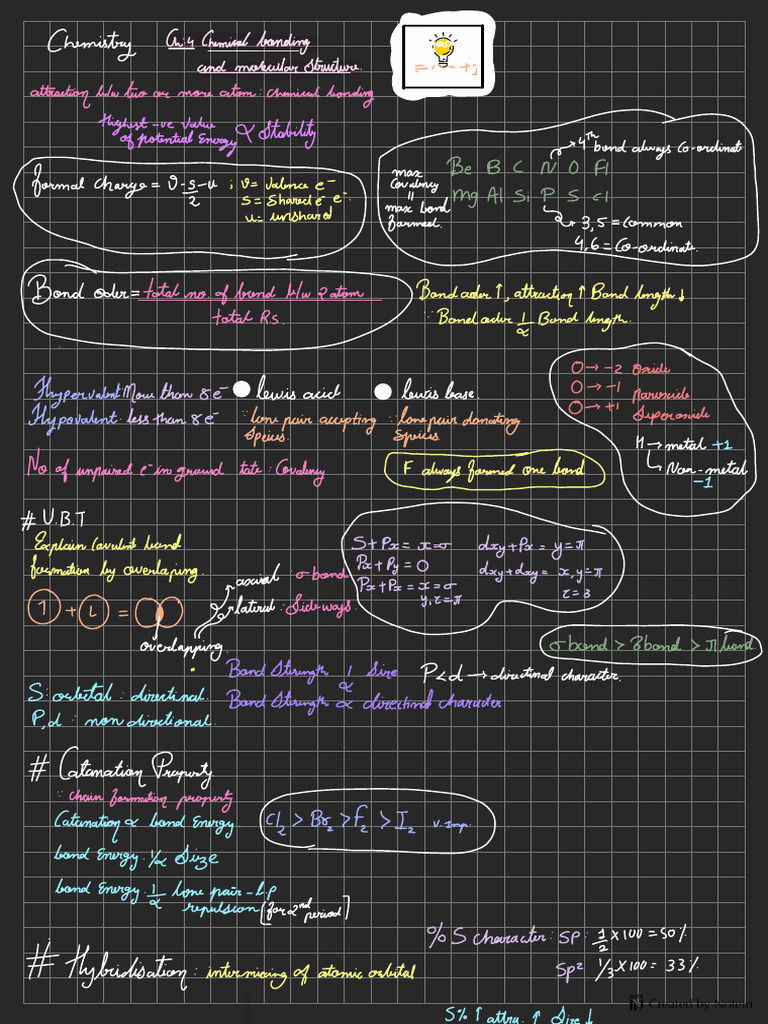 Chemistry Ch:4 Chemical bonding
and molecular structure.
attraction b/w two or more atom: chemical bonding
Highest -ve value
of potential Energy ∝ Stability
formal charge = V - s/2 - u ; V= valence e⁻
S = Shared e⁻
u = unshared e⁻
4th bond always Co-ordinate
max Covalency = max bond formed.
Be B C N O Fl
Mg Al Si P S Cl
3,5 = common
4,6 = Co-ordinate.
Bond oder = total no. of bond b/w 2 atom
total R.S.
Bond order ↑, attraction ↑ Bond length ↓
∵ Bond order 1/∝ Bond length.
O → -2 Oxide
O → -1 Peroxide
O → +1 Superoxide
H → metal +1
↳ Non-metal -1
Hypervalent More than 8e⁻
Hypovalent. less than 8e⁻
lewis acid
∵ lone pair accepting
Speices.
lewis base
∵ lone pair donating
Speices
No of unpaired e⁻ in ground tate: Covalency
F always formed one bond
# V.B.T
Explain Covalent band
formation by overlaping.
1 + L =
overlapping.
axial : σ bond
latiral : Sideways
S + Px = x = σ
Px + Py = 0
Px + Px = x = σ
y, z = π
dxy + Px = y = π
dxy + dxy = x, y = π
z = 3
σ band > 3 band > π band.
Bond Strength 1/∝ Size
Bond Strength ∝ directinal character
P < d → directinal character.
S: orbital : directinal.
P, d : non directional.
# Catanation Property
∵ chain formation property
Catanation ∝ bond Energy.
bond Energy. 1/∝ Size
bond Energy. 1/∝ lone pair - l.p
repulsion [for 2nd period]
Cl₂ > Br₂ > F₂ > I₂ v. Imp.
# Hybridisation : intermixing of atomic orbital
% S character : SP : 1/2 × 100 = 50%
SP² 1/3 × 100 = 33%
S% ↑ attra. ↑ Size ↓
Created by Notein